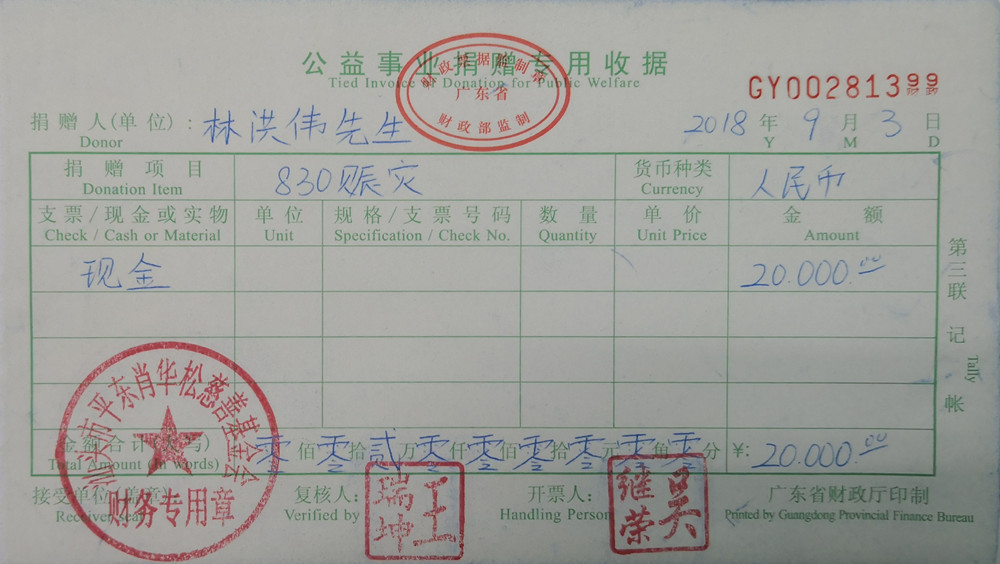 公益事业捐赠专用收据
Tied Invoice of Donation for Public Welfare
财政票据监制章
广东省
财政部监制
GY00281399
捐赠人(单位): 林洪伟先生 2018年9月3日
Donor Y M D
捐赠项目 830赈灾 货币种类 人民币
Donation Item Currency
支票/现金或实物 单位 规格/支票号码 数量 单价 金额
Check / Cash or Material Unit Specification / Check No. Quantity Unit Price Amount
现金 20.000.00
金额合计(大写) 零佰零拾贰万零仟零佰零拾零元零角零分 ¥: 20.000.00
Total Amount (In words)
接受单位(盖章) 复核人: 开票人: 广东省财政厅印制
Receiver(seal) Verified by Handling Person Printed by Guangdong Provincial Finance Bureau
汕头市平东肖华松慈善基金会
财务专用章
王瑞坤
吴继荣
第三联 记帐
Tally